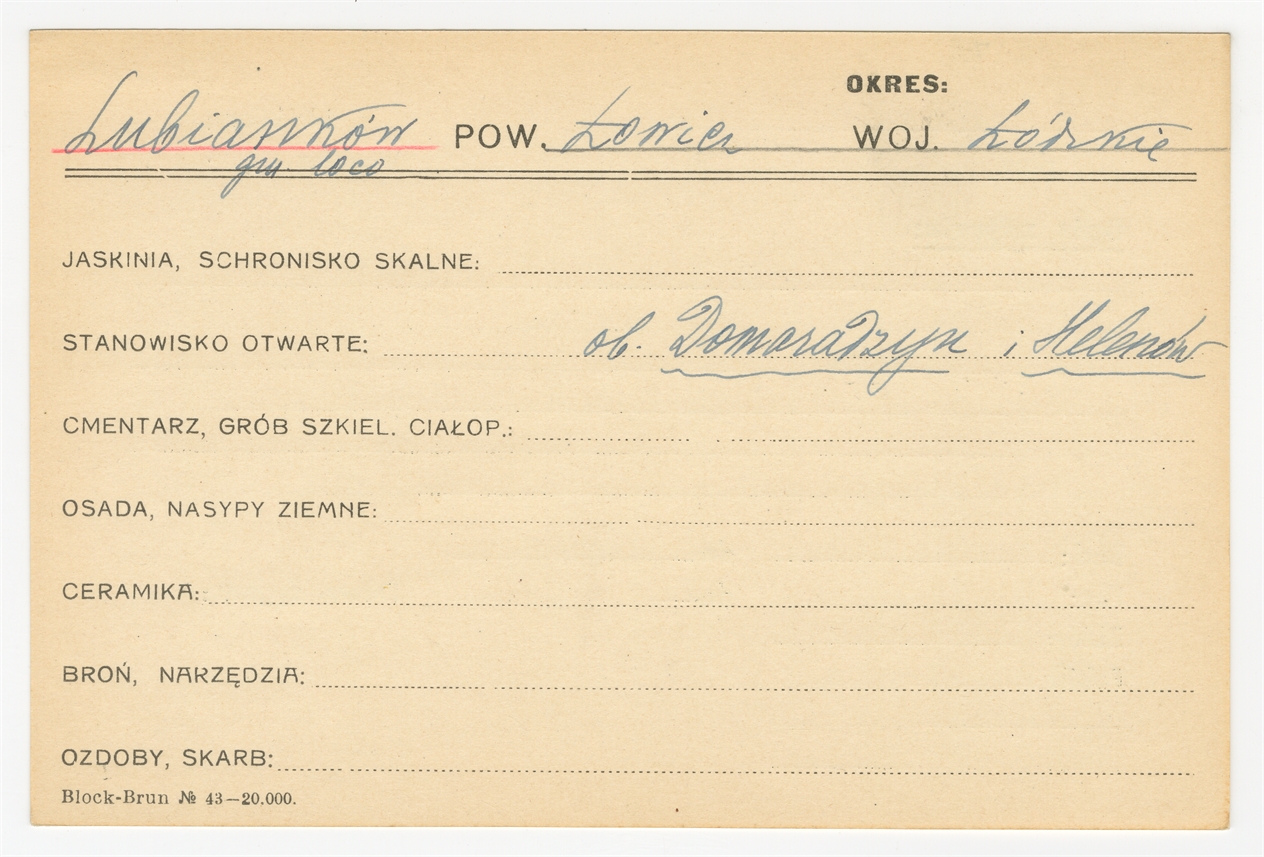 OKRES:
Lubianków POW. Łowicz WOJ. Łódzkie
gm. loco
JASKINIA, SCHRONISKO SKALNE:
STANOWISKO OTWARTE: ob. Domaradzyn i Helenów
CMENTARZ, GRÓB SZKIEL. CIAŁOP.:
OSADA, NASYPY ZIEMNE:
CERAMIKA:
BROŃ, NARZĘDZIA:
OZDOBY, SKARB:
Block-Brun № 43—20.000.